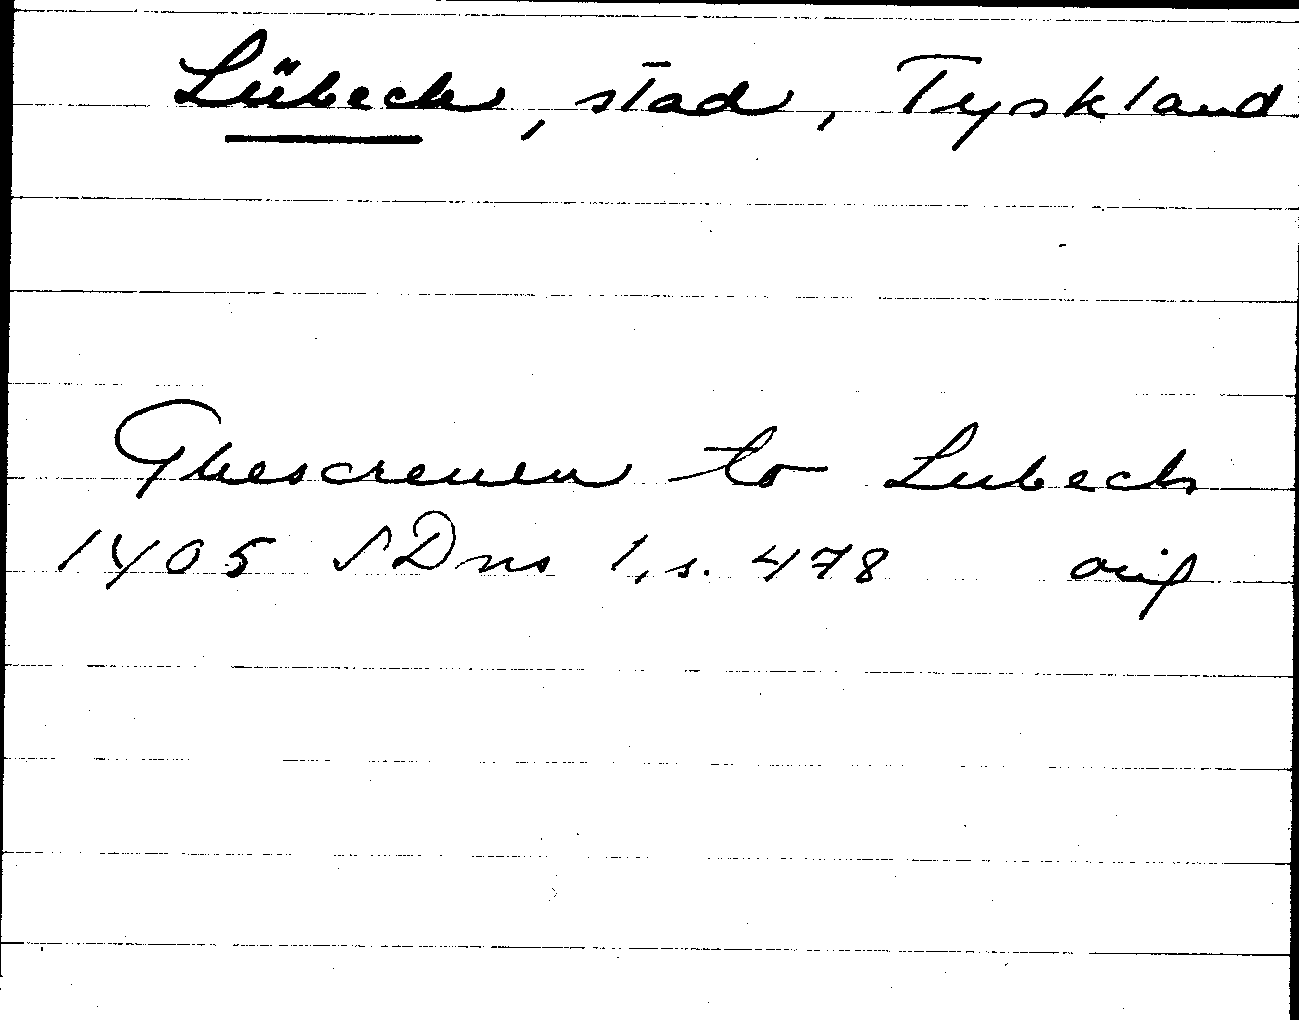 Lübeck, stad, Tyskland
Ghescreuen to Lubeck
1405 SDns 1, s. 478 orig